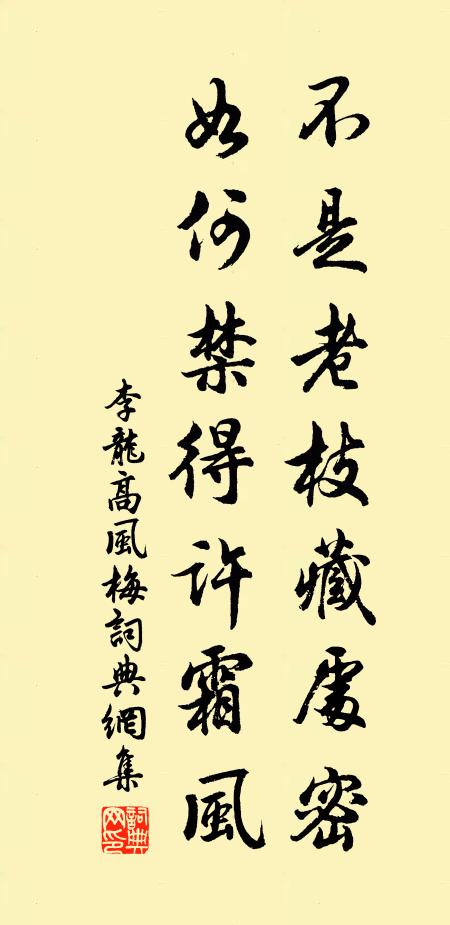 不是老枝藏處密
如何禁得許霜風
李龍高風梅詞典網集
詞典網印